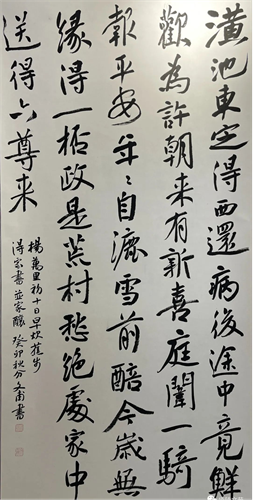 潢池東定得西還病後途中竟鮮
歡為許朝来有新喜庭闈一騎
報平安年〻自漉雪前醅今歲無
緣得一桮政是荒村愁絕處家中
送得六尊来
楊萬里初十日早炊蕉步
得家書並家釀 癸卯秋分文甫書